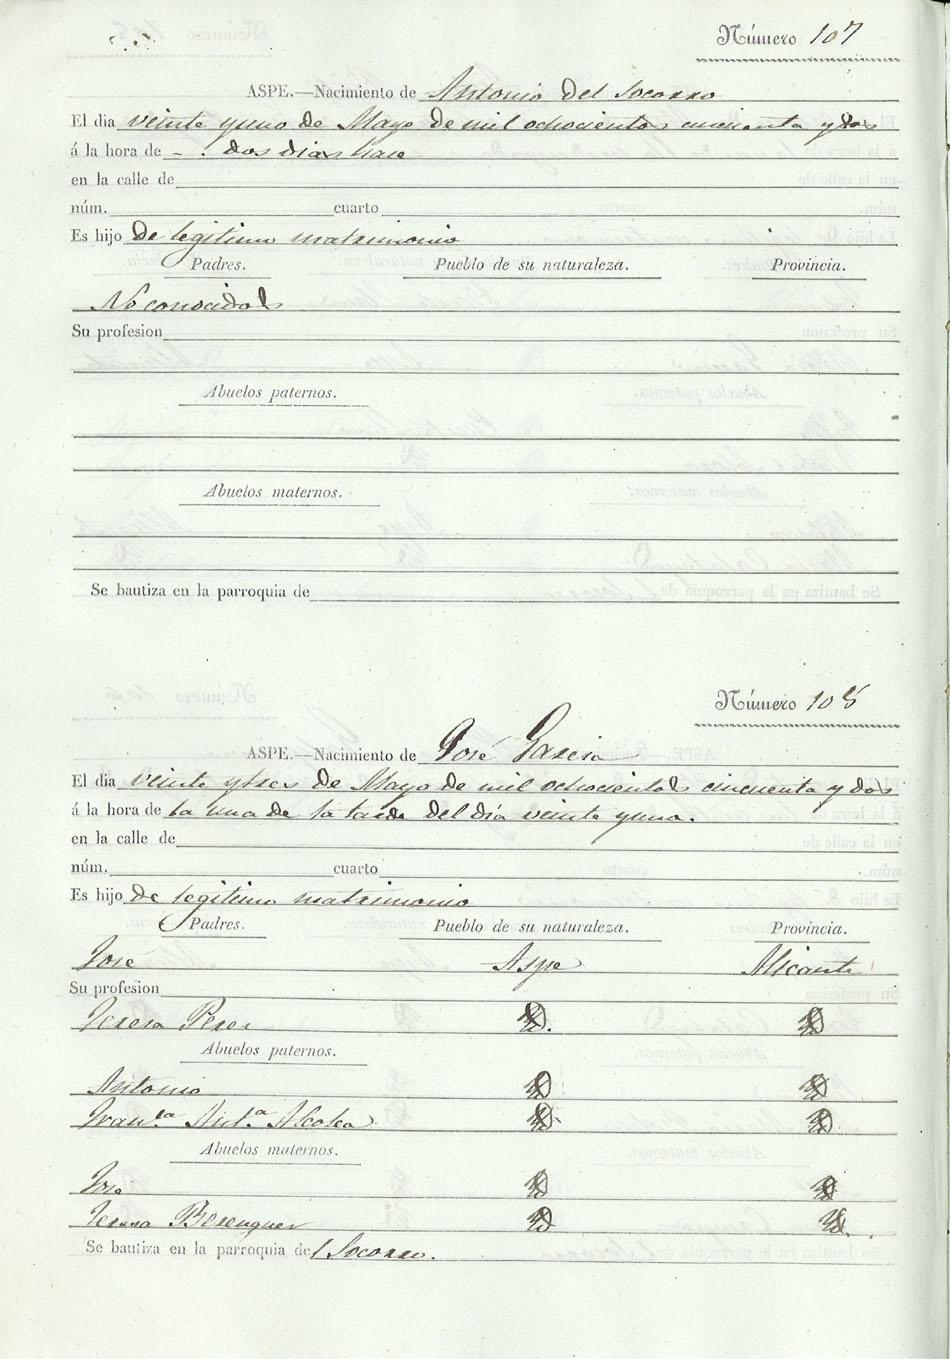 Número 107
ASPE.—Nacimiento de Antonio del Socorro
El dia veinte y uno de Mayo de mil ochocientos cincuenta y dos
á la hora de - . dos dias hace
en la calle de
núm. cuarto
Es hijo de legitimo matrimonio
Padres. Pueblo de su naturaleza. Provincia.
No conocidos
Su profesion
Abuelos paternos.
Abuelos maternos.
Se bautiza en la parroquia de
Número 108
ASPE.—Nacimiento de José Garcia
El dia veinte y tres de Mayo de mil ochocientos cincuenta y dos
á la hora de la una de la tarde del dia veinte y uno.
en la calle de
núm. cuarto
Es hijo de legitimo matrimonio
Padres. Pueblo de su naturaleza. Provincia.
José Aspe Alicante
Su profesion
Teresa Perez Yd. Yd
Abuelos paternos.
Antonio Yd Yd
Fran.ca Ant.a Alcolea Yd. Yd
Abuelos maternos.
José Yd Yd
Teresa Berenguer Yd Yd.
Se bautiza en la parroquia del Socorro.